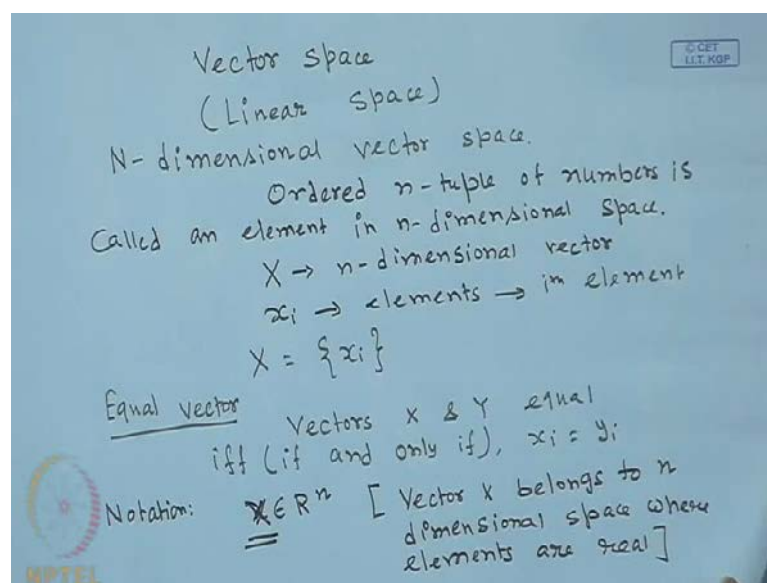 Vector space
© CET
I.I.T. KGP
(Linear space)
N-dimensional vector space.
Ordered n-tuple of numbers is
Called an element in n-dimensional space.
X → n-dimensional vector
xᵢ → elements → iᵗʰ element
X = {xᵢ}
Equal vector
Vectors X & Y equal
iff (if and only if), xᵢ = yᵢ
Notation: X ∈ Rⁿ [Vector X belongs to n
dimensional space where
elements are real]
NPTEL